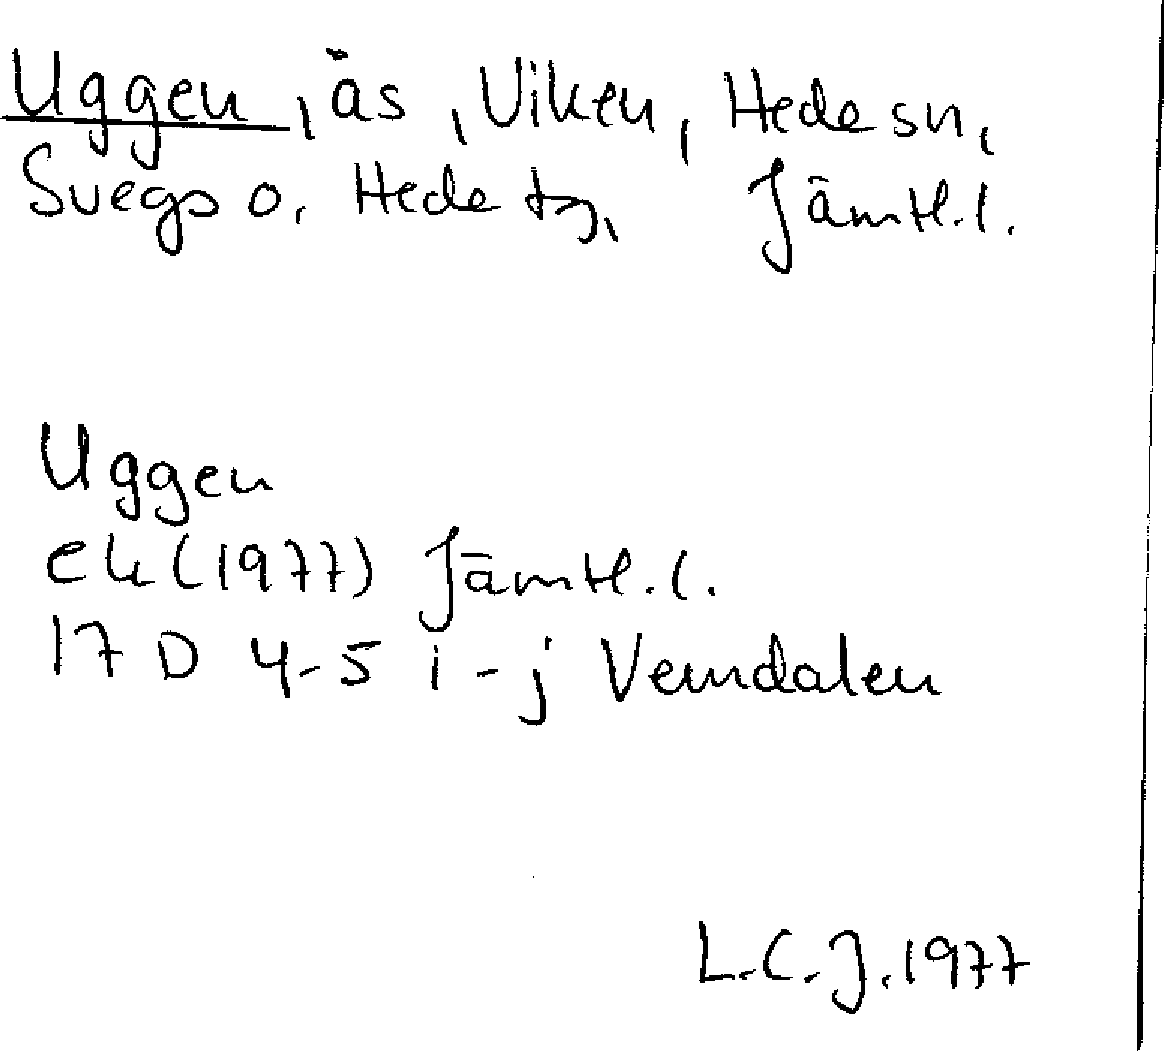 Uggen, ås, Viken, Hede sn,
Svegs o. Hede tg, Jämtl. l.
Uggen
ek (1977) Jämtl. l.
17 D 4-5 i-j Vemdalen
L.C.J. 1977